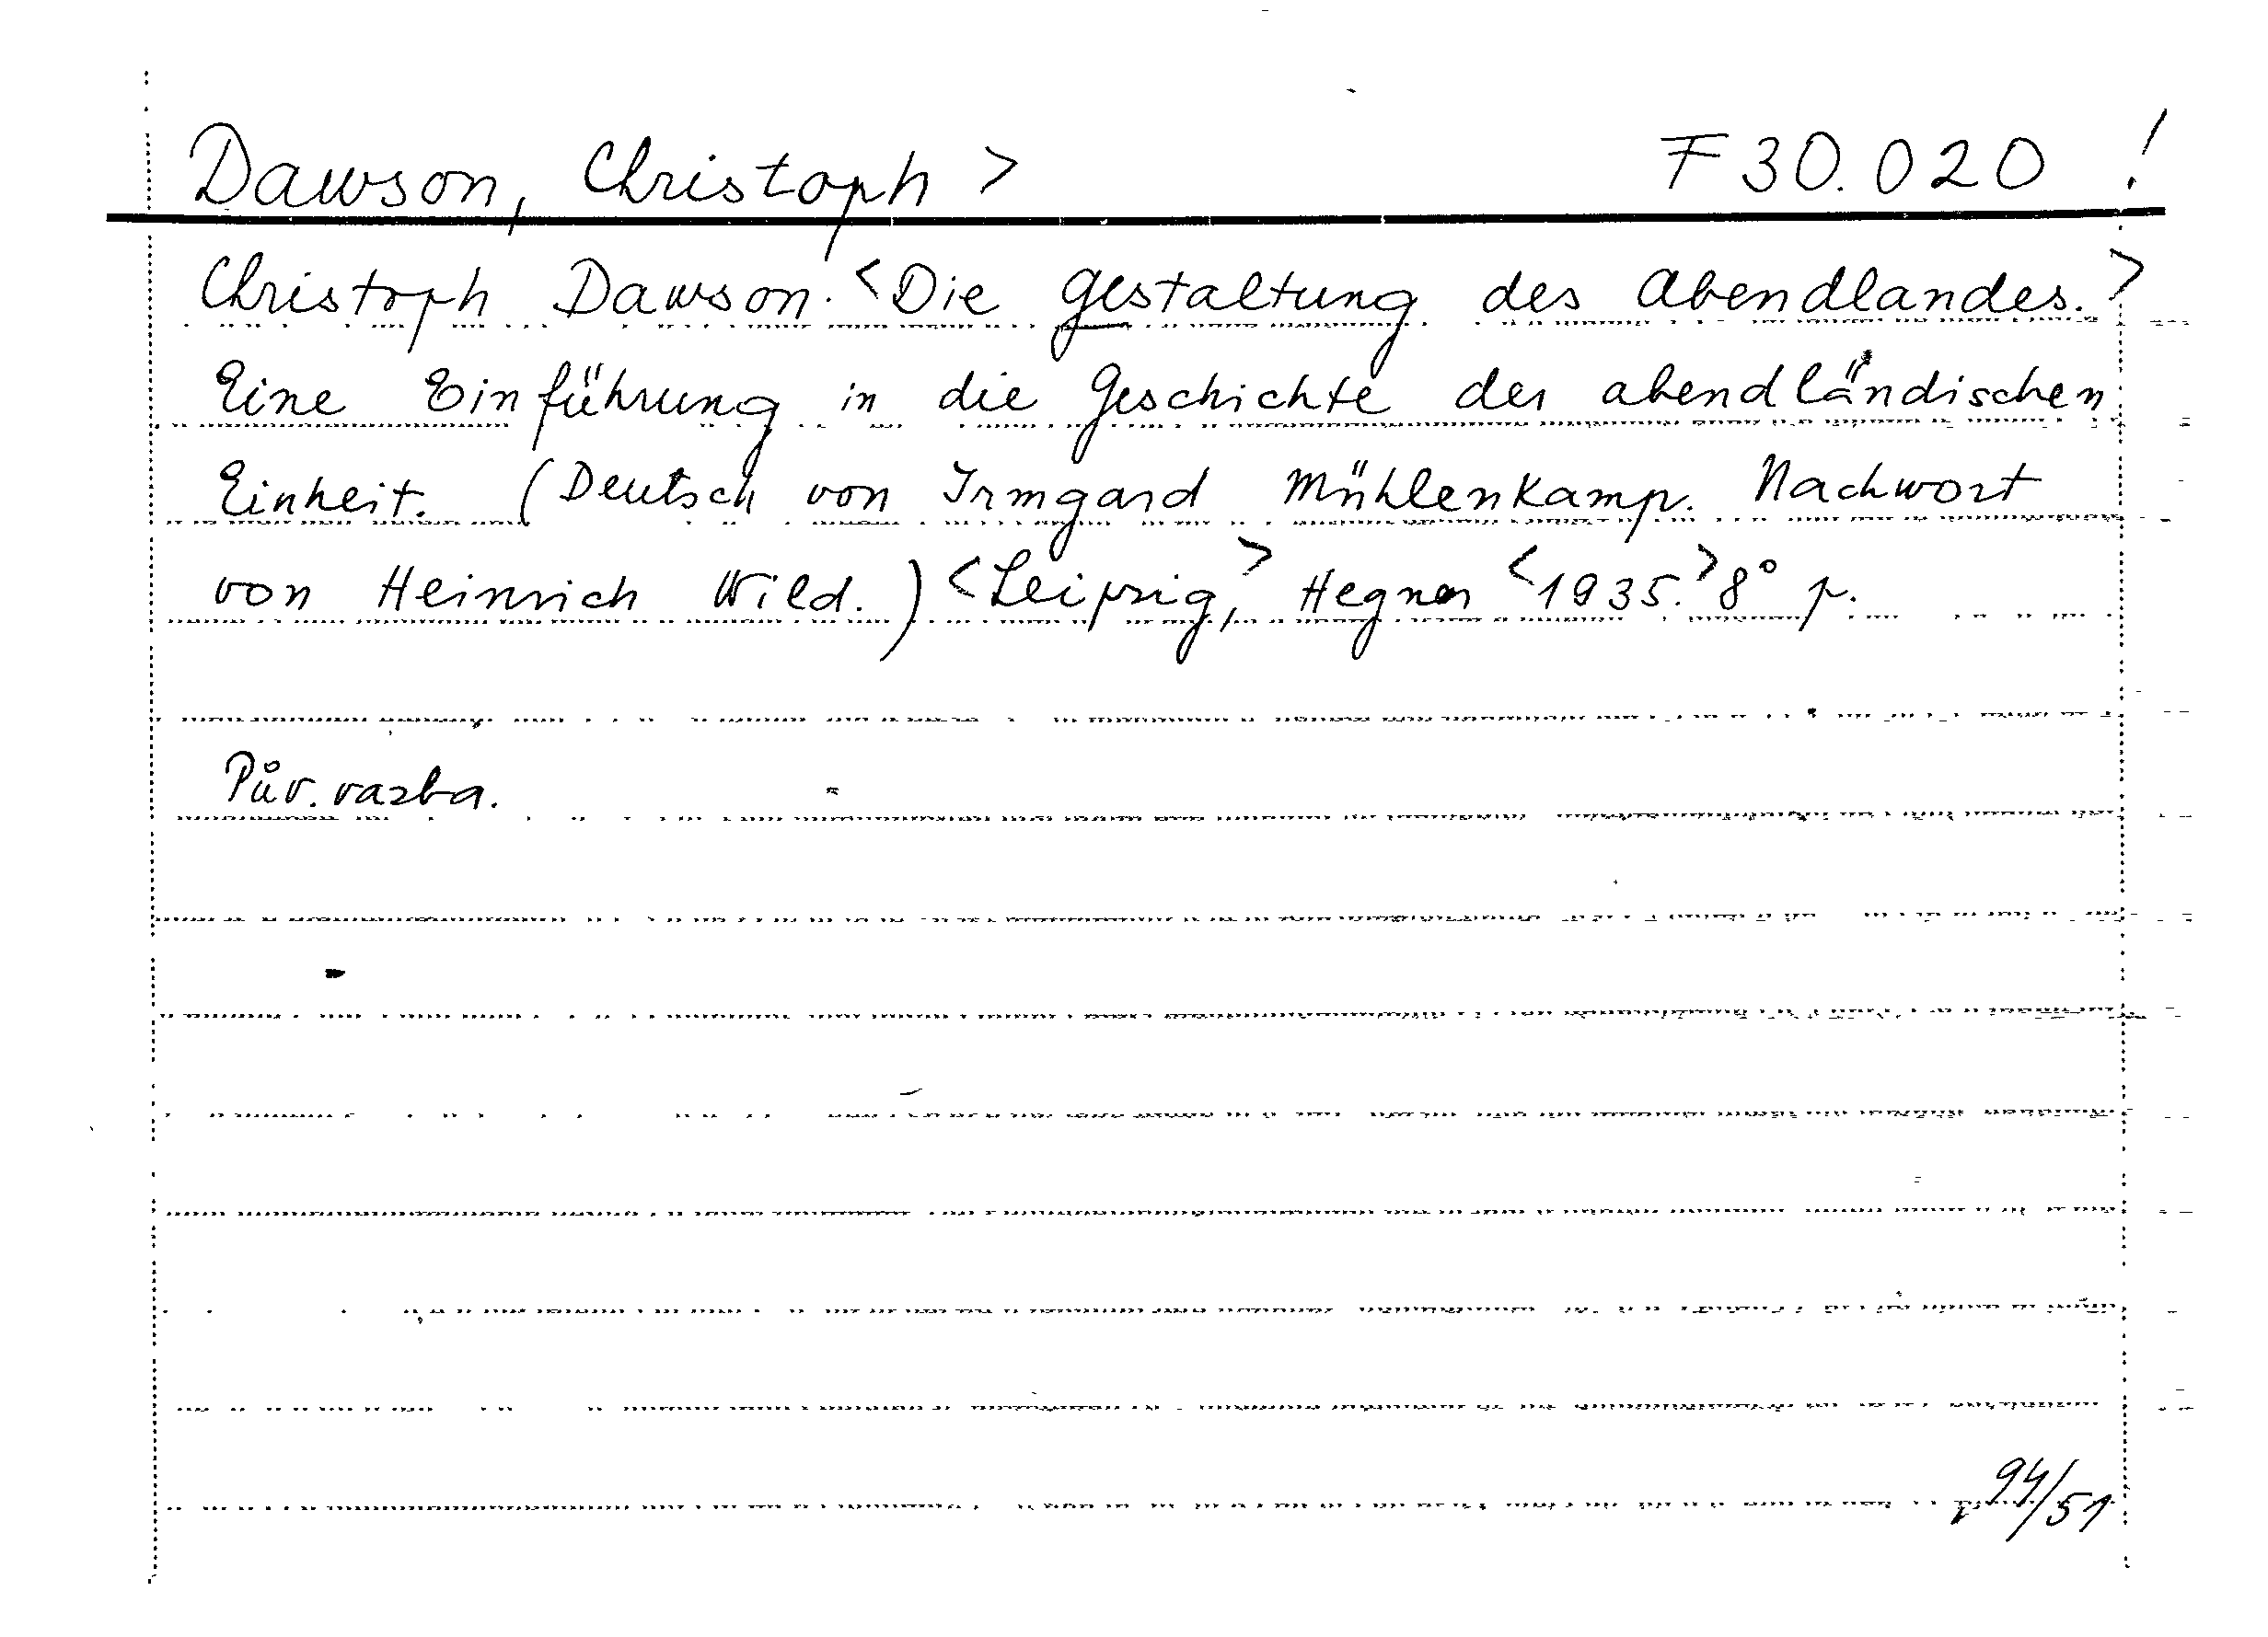 Dawson, Christoph > F 30.020 !
Christoph Dawson: <Die Gestaltung des Abendlandes.>
Eine Einführung in die Geschichte der abendländischen
Einheit. (Deutsch von Irmgard Mühlenkamp. Nachwort
von Heinrich Wild.) <Leipzig,> Hegner <1935.> 8° p.
Pův. vazba.
94/51